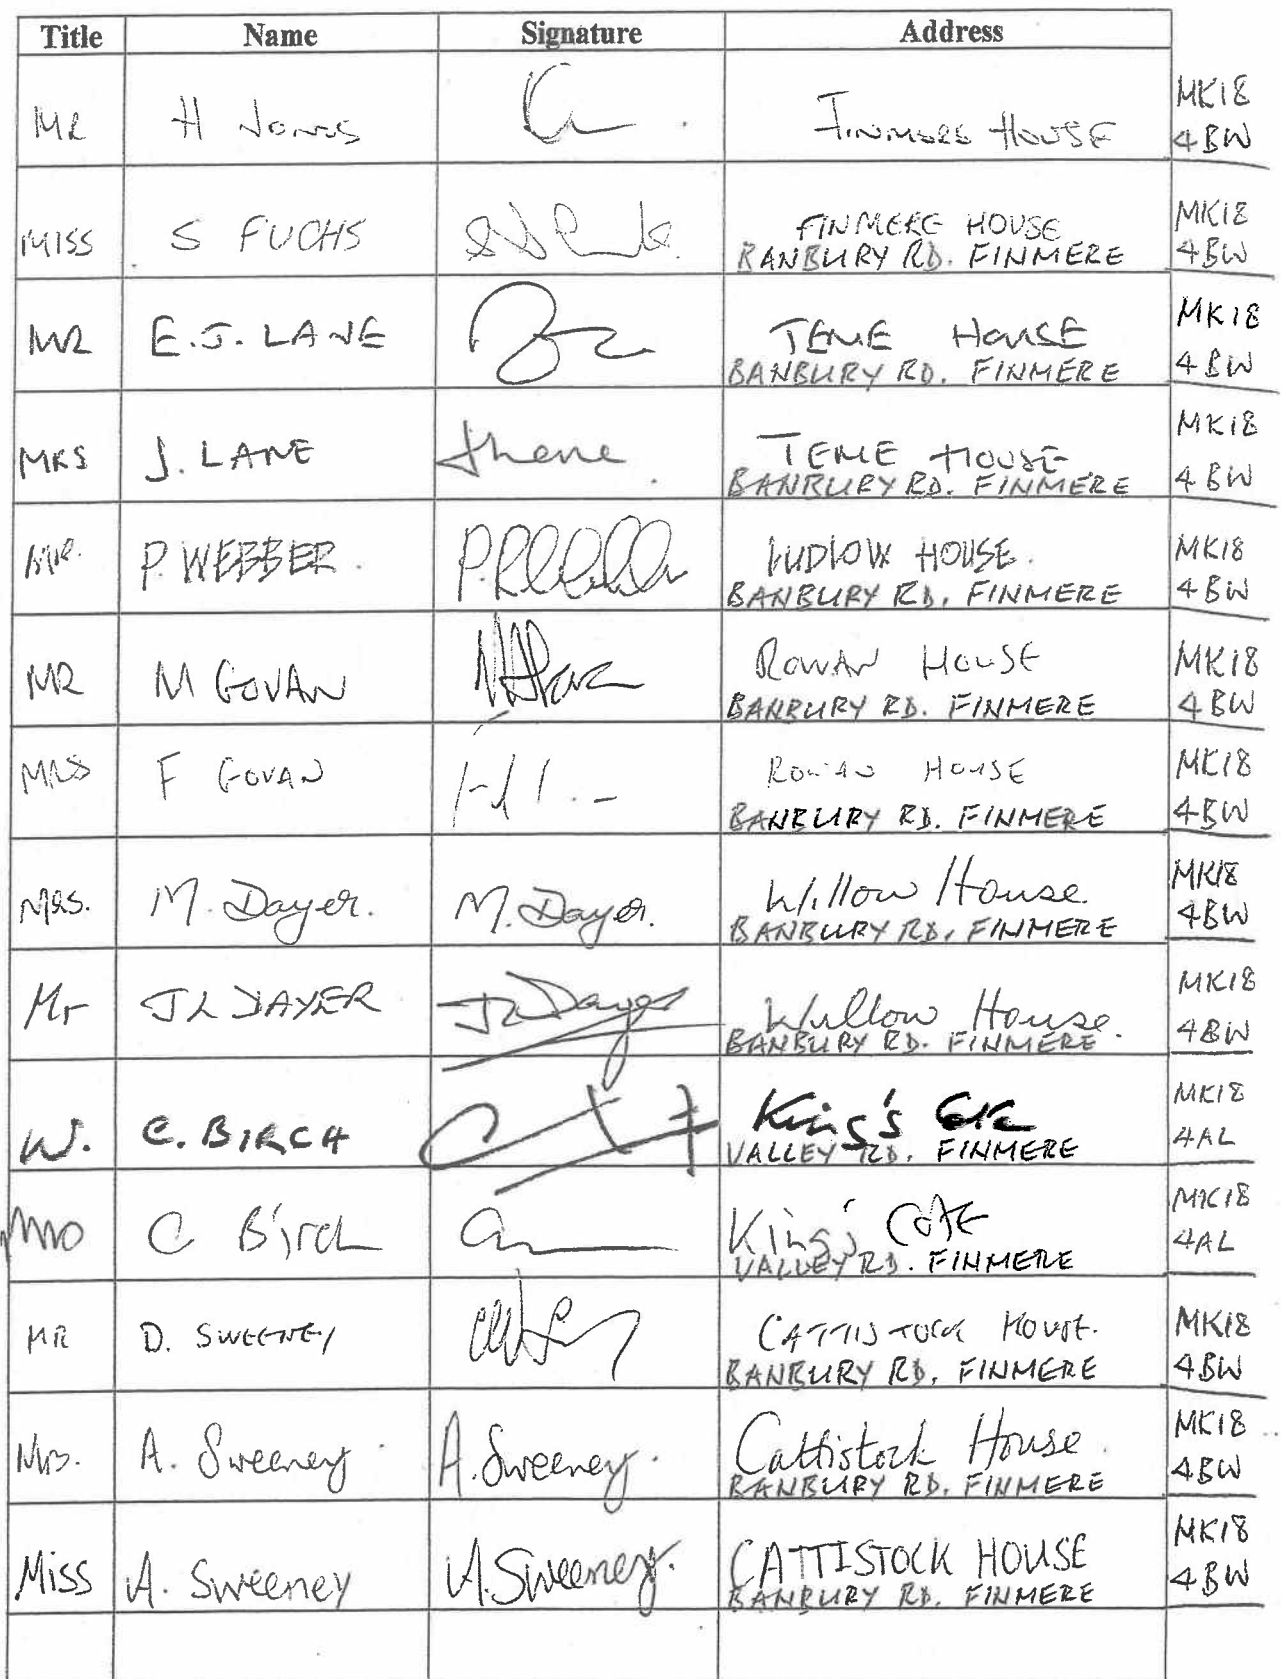 Title Name Signature Address
MR H Jones Finmere House MK18
4BW
MISS S FUCHS FINMERE HOUSE MK18
BANBURY RD. FINMERE 4BW
MR E.J. LANE TEME HOUSE MK18
BANBURY RD. FINMERE 4BW
MRS J. LANE TEME HOUSE MK18
BANBURY RD. FINMERE 4BW
MR. P. WEBBER. LUDLOW HOUSE. MK18
BANBURY RD. FINMERE 4BW
MR M GOVAN ROWAN HOUSE MK18
BANBURY RD. FINMERE 4BW
MRS F GOVAN ROWAN HOUSE MK18
BANBURY RD. FINMERE 4BW
MRS. M. Dayer. M. Dayer. Willow House. MK18
BANBURY RD. FINMERE 4BW
Mr JL DAYER JL Dayer Willow House. MK18
BANBURY RD. FINMERE. 4BW
C. BIRCH King's MK18
VALLEY RD. FINMERE 4AL
C Birch King's MK18
VALLEY RD. FINMERE 4AL
MR D. SWEENEY CATTISTOCK HOUSE. MK18
BANBURY RD. FINMERE 4BW
Mrs. A. Sweeney A. Sweeney. Cattistock House. MK18
BANBURY RD. FINMERE 4BW
Miss A. Sweeney A. Sweeney. CATTISTOCK HOUSE MK18
BANBURY RD. FINMERE 4BW